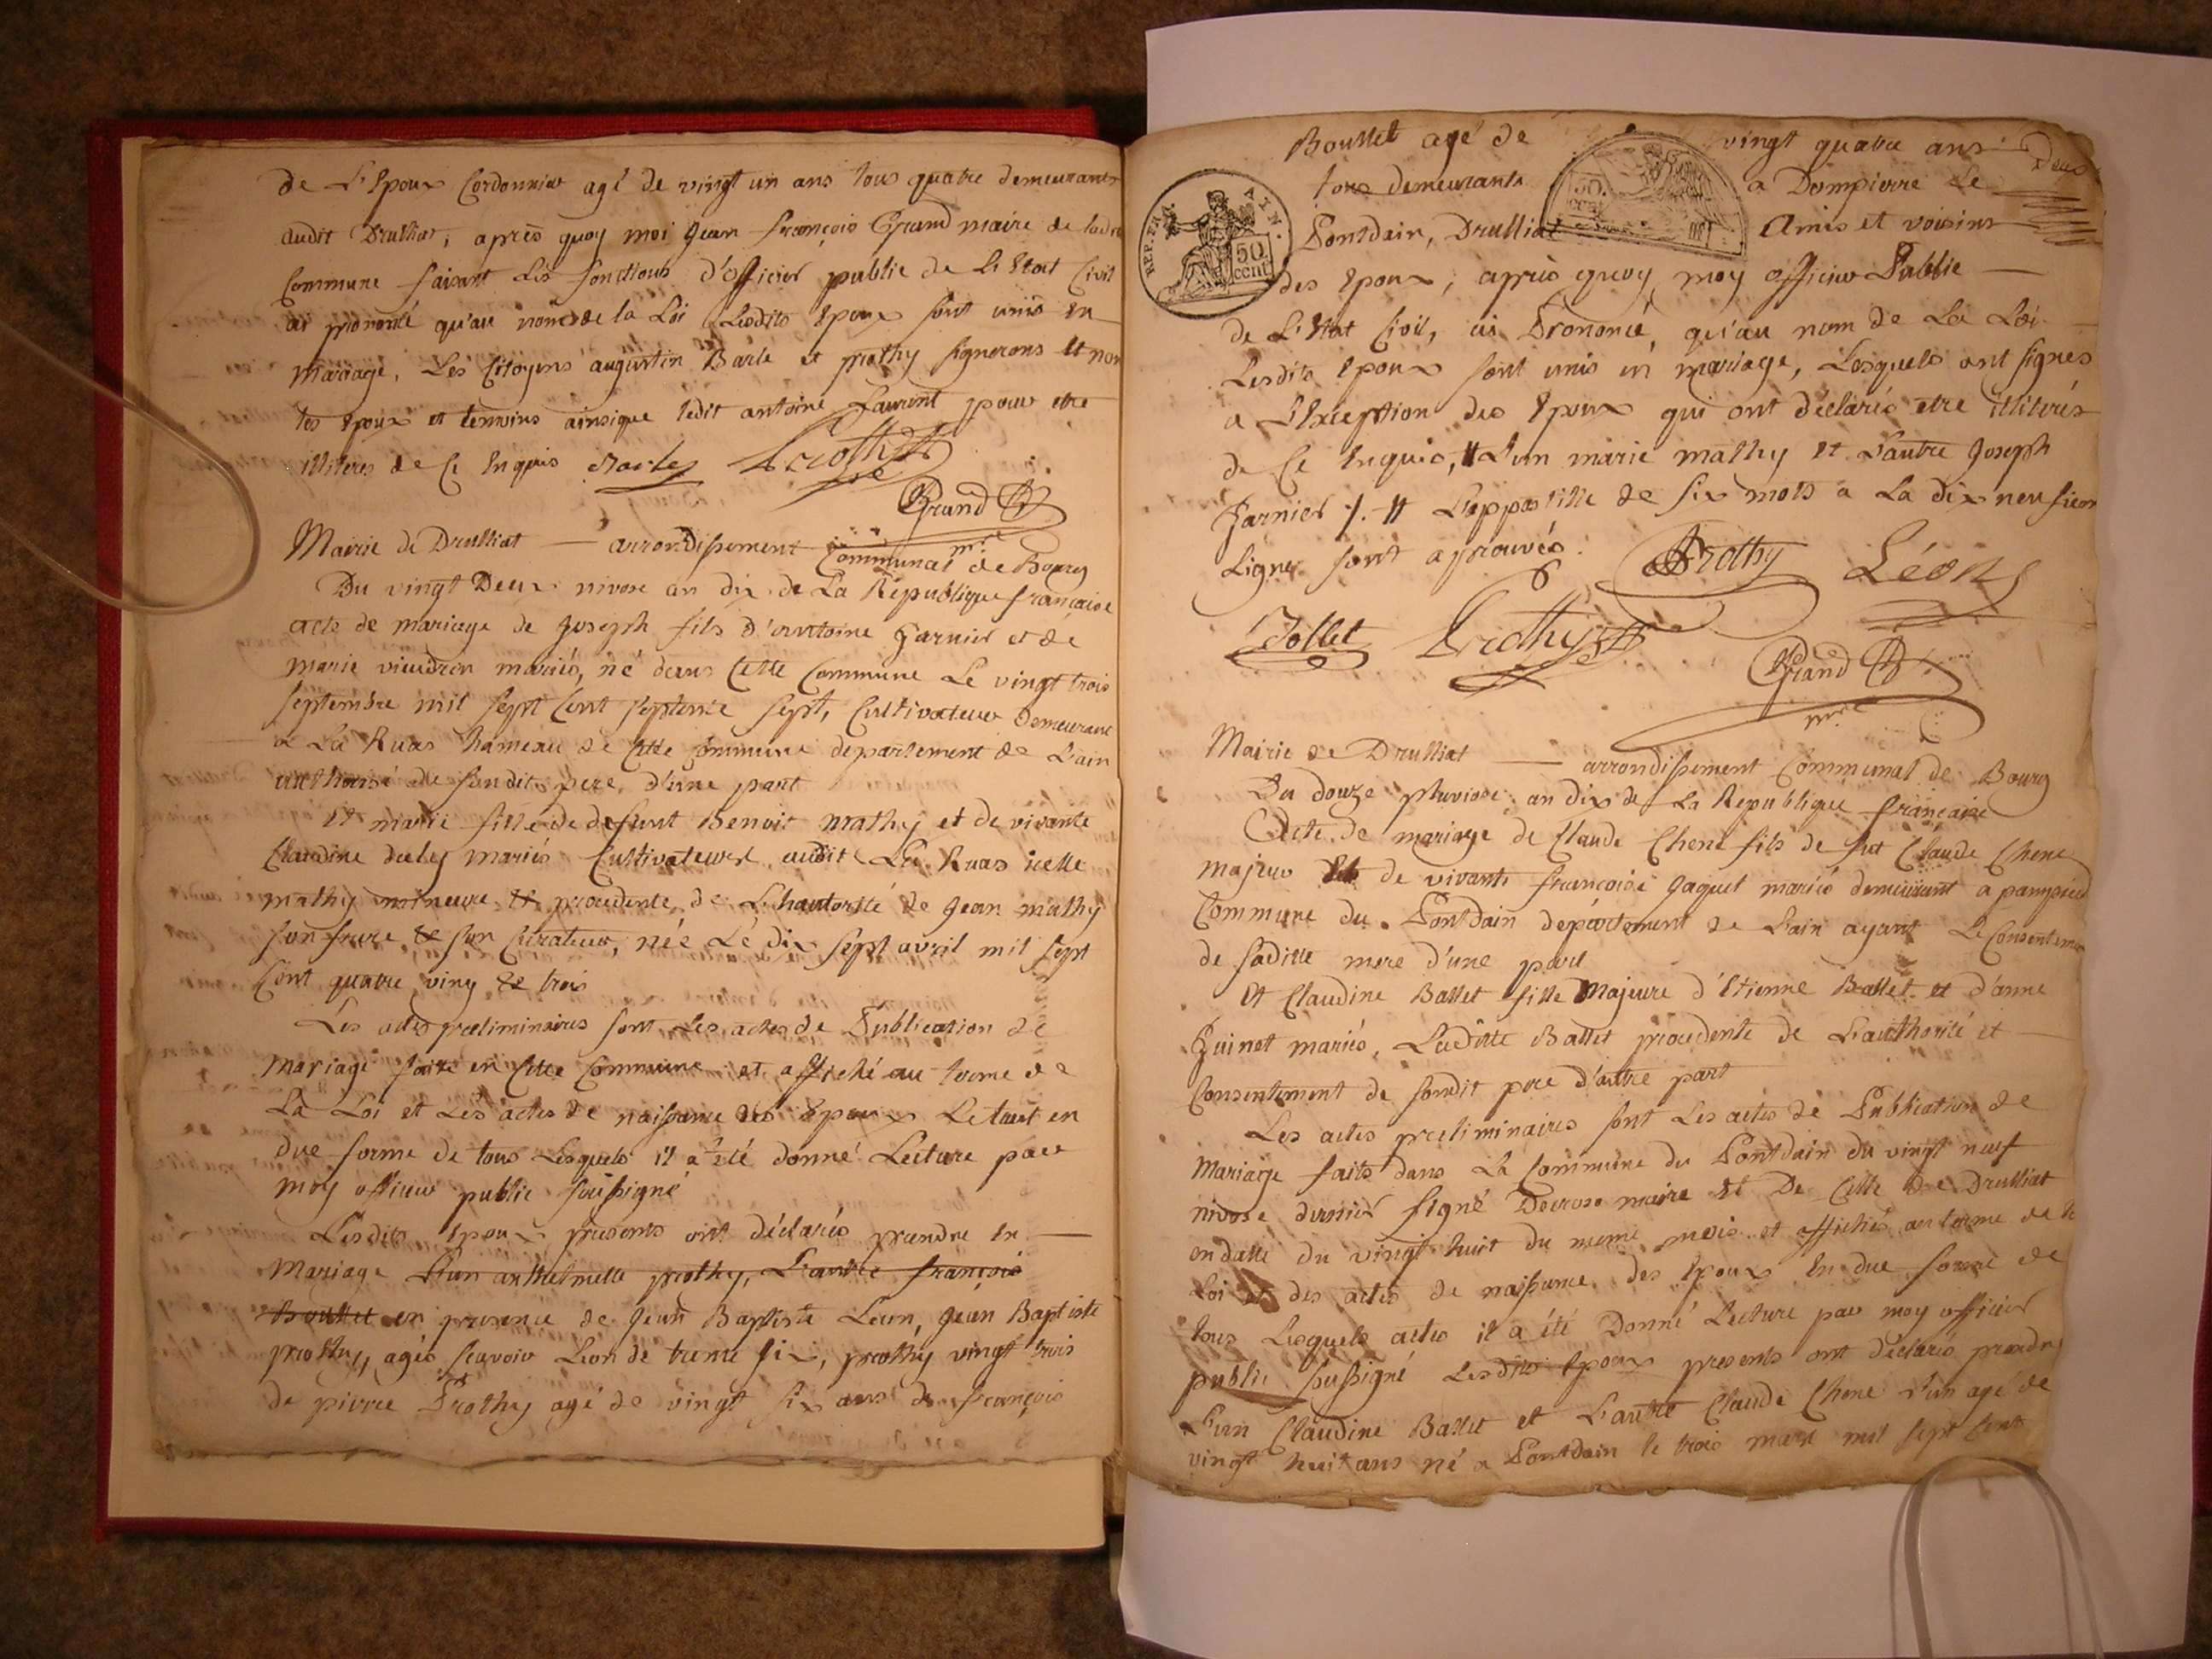 de L'Epoux Cordonnier agé de vingt un ans tous quatre demeurants
audit Druilliat, après quoy moi Jean François Grand maire de ladte
Commune faisant Les fonctions d'officier public de L'Etat Civil
ai prononcé qu'au nom de la Loi Lesdits Epoux sont unis en
mariage, Les Citoyens augustin Barle et prothy signerons et non
les Epoux et temoins ainsique ledit antoine Laurent pour etre
illiteres de Ce Enquis Barle Prothy
Grand
mre
Mairie de Druilliat — arrondissement Communal de Bourg
Du vingt Deux nivose an dix de La République française
acte de mariage de Joseph fils d'antoine Garnier et de
marie vieudrin mariés, né dans Cette Commune Le vingt trois
septembre mil sept Cent septente sept, Cultivateur demeurant
a La Ruas hameau de Cette Commune departement de L'ain
authorisé de son dit pere, d'une part
Et marie fille de defunt Benoit mathy et de vivante
Claudine mariés Cultivateurs audit La Ruas icelle
mathy mineure et procedente de L'hautorité de Jean mathy
son frere et son Curateur, née Le dix sept avril mil sept
Cent quatre ving et trois
Les actes preliminaires sont Les actes de Publication de
mariage faite en Cette Commune et affiché au terme de
La Loi et Les actes de naissance des Epoux Le tout en
due forme de tous Lesquels il a été donné Lecture par
moy officier public soussigné
Lesdits Epoux presents ont déclarés prendre En —
mariage L'un anthelmette prothy, L'autre françois
Boullet en presence de Jean Baptiste Leon, Jean Baptiste
prothy, agés sçavoir Leon de trente six, prothy vingt trois
de pierre Prothy agé de vingt six ans de françois
Boullet agé de vingt quatre ans Deux
tous demeurants a Dompierre Le
Pontdain, Druilliat Amis et voisins
REP. FRA. AIN. 50 cent
des Epoux, après quoy moy officier Public —
de L'Etat Civil, ai Prononcé, qu'au nom de La Loi —
Lesdits Epoux sont unis en mariage, Lesquels ont signés
a L'Exception des Epoux qui ont déclarés etre illiterés
de Ce Enquis, # L'un marie mathy et L'autre Joseph
Garnier /. # L'appostille de six mots a La dix neufieme
Ligne sont aprouvés.
Prothy Léon
Tollet Prothy
Grand
mre
Mairie de Druilliat — arrondissement Communal de Bourg
Du douze pluviose an dix de La Republique française
Acte de mariage de Claude Chene fils de feu Claude Chene
majeur Et de vivante françoise Jaquet mariés demeurant a
Commune du Pontdain département de L'ain ayant Le Consentement
de saditte mere d'une part
Et Claudine Ballet fille Majeure d'Etienne Ballet et d'anne
Guinet mariés, Laditte Ballet procedente de L'authorité et —
Consentement de sondit pere d'autre part
Les actes preliminaires sont Les actes de Publication de
Mariage faits dans La Commune du Pontdain du vingt neuf
nivose dernier signé maire Et De Celle de Druilliat
en datte du vingt huit du meme mois et affichés au terme de la
Loi et des actes de naissance des Epoux En due forme de
tous Lesquels actes il a été Donné Lecture par moy officier
public soussigné Lesdits Epoux presents ont déclarés prendre
L'un Claudine Ballet et L'autre Claude Chene L'un agé de
vingt huit ans né a Pontdain le trois mars mil sept Cent